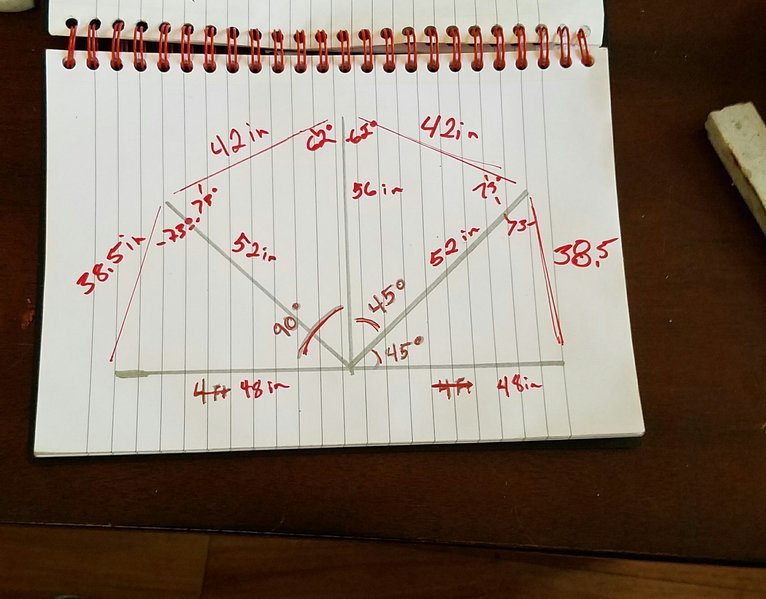 42in
62°
62°
42in
56in
73°
73°
73
52in
52in
38.5in
38.5
90°
45°
45°
4ft 48in
4ft 48in